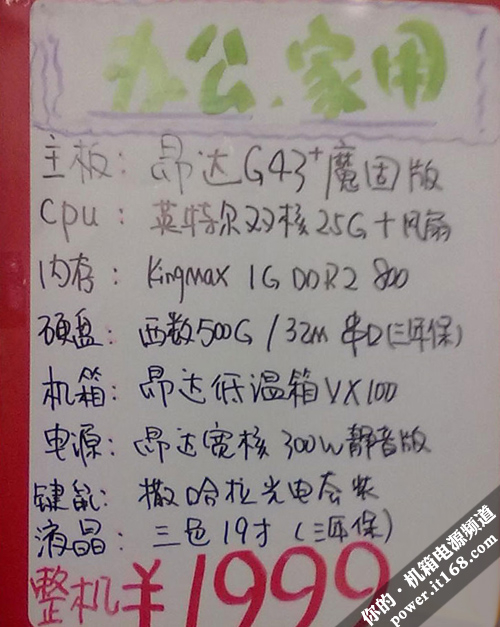 办公.家用
主板: 昂达G43+魔固版
cpu: 英特尔双核2.5G+风扇
内存: Kingmax 1G DDR2 800
硬盘: 西数500G/32m 串口(三年保)
机箱: 昂达低温箱VX100
电源: 昂达宽核300W静音版
键鼠: 撒哈拉光电套装
液晶: 三色19寸(三年保)
整机¥1999
你的·机箱电源频道
power.it168.com